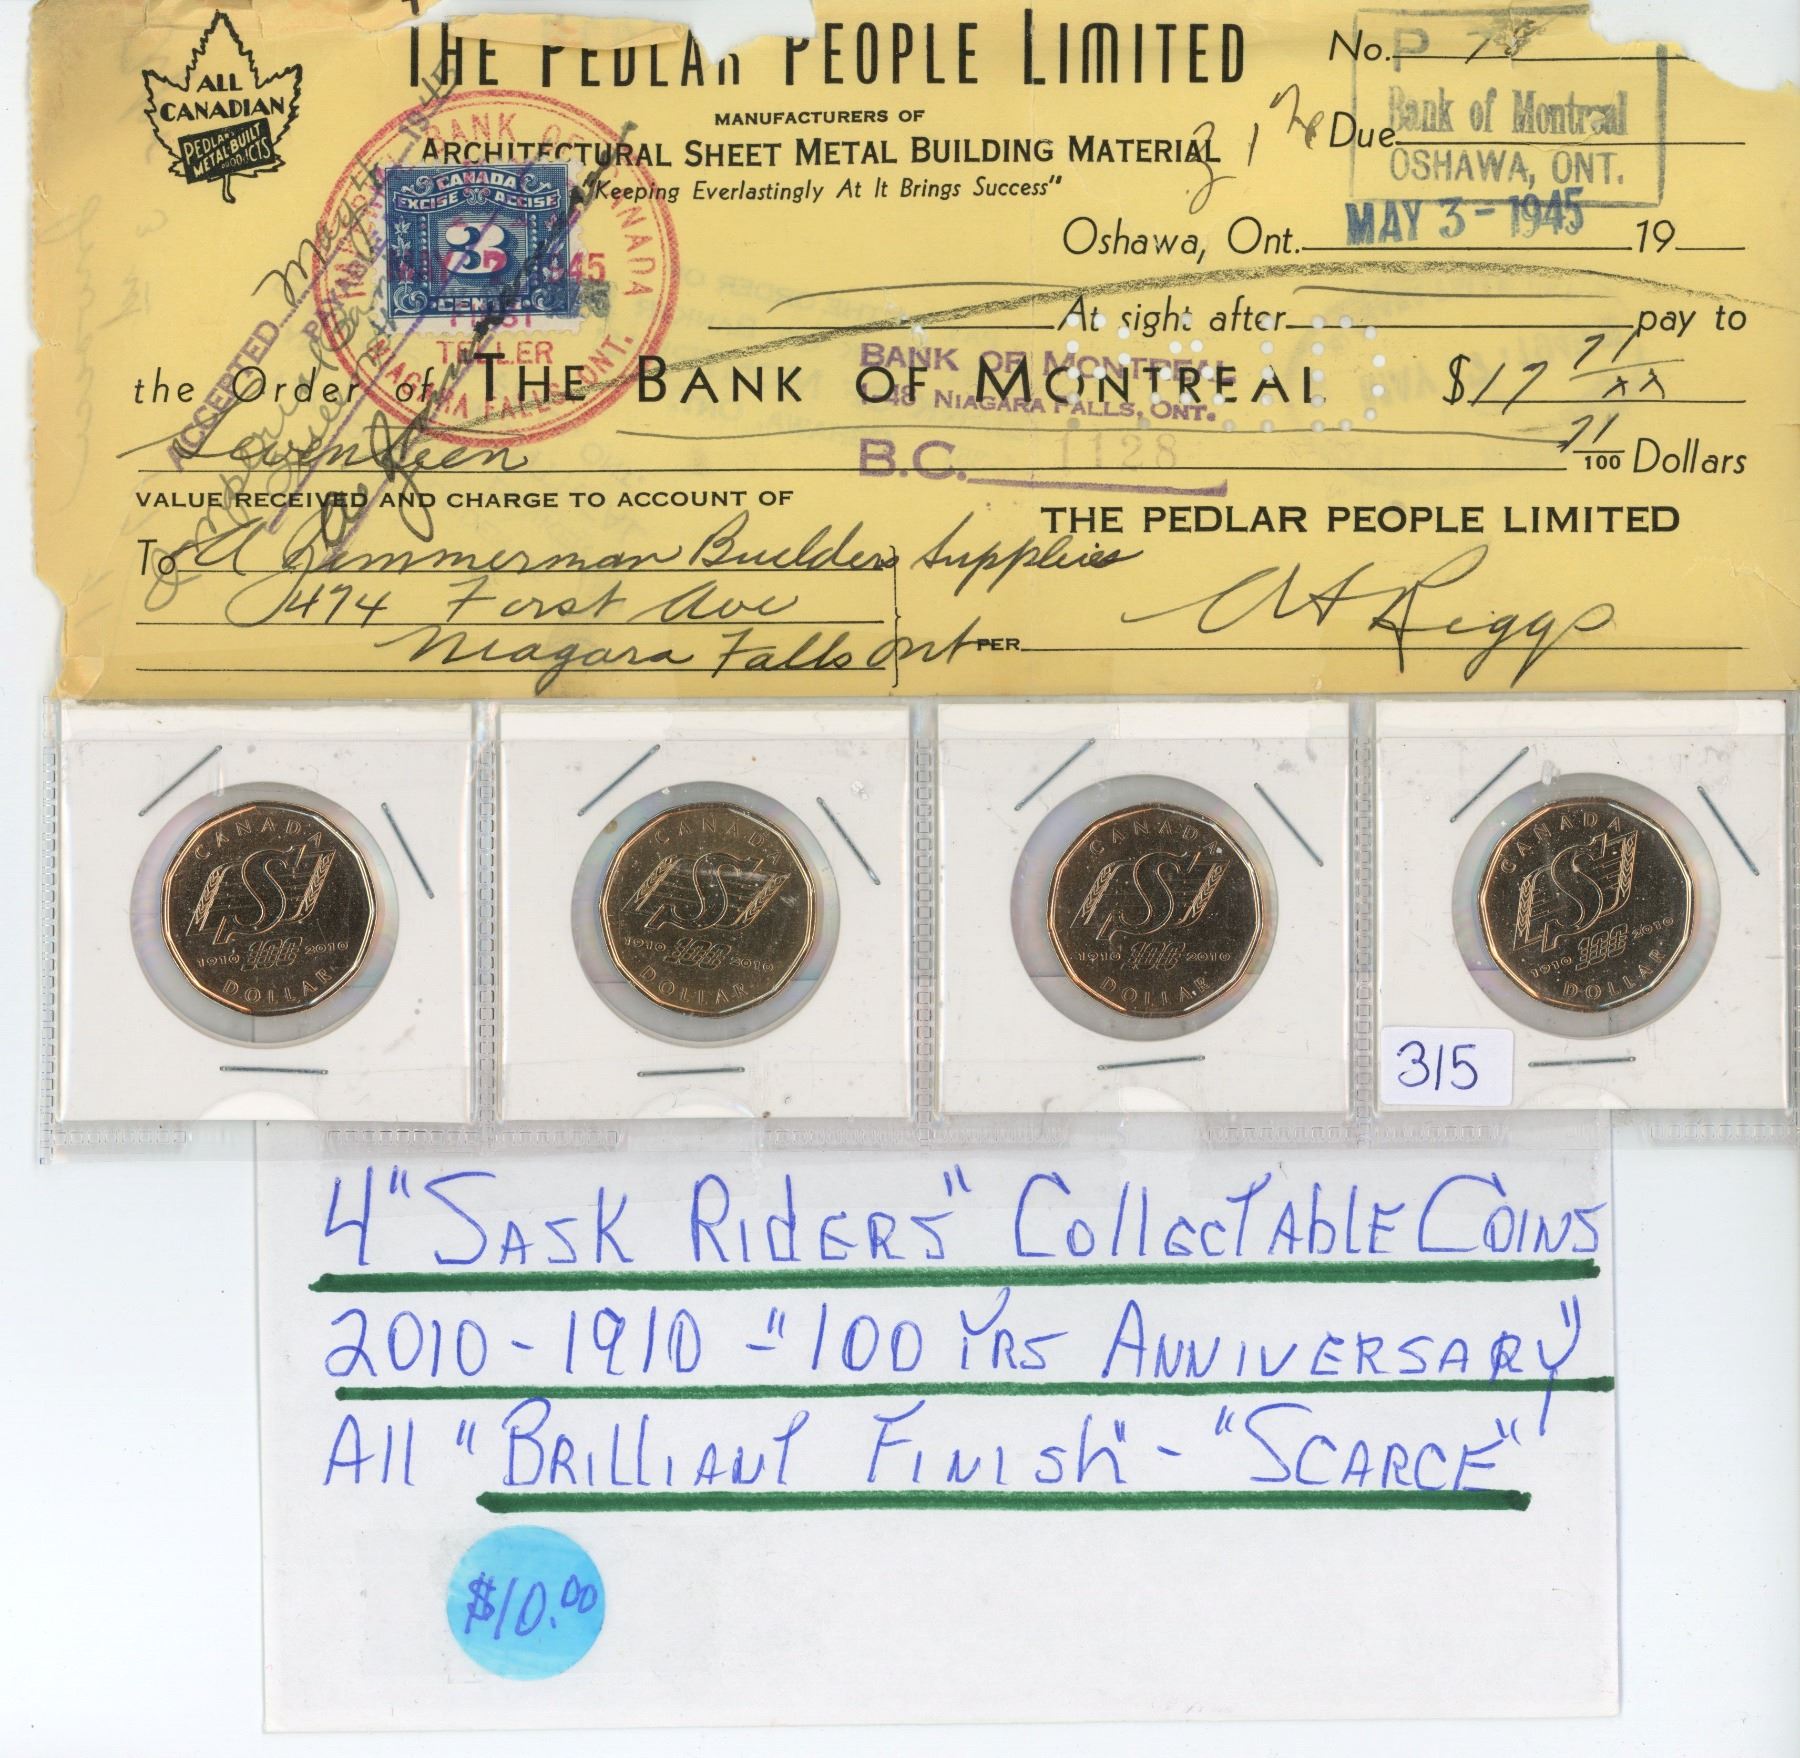 THE PEDLAR PEOPLE LIMITED
ALL
CANADIAN
PEDLAR'S
METAL-BUILT
PRODUCTS
No.
MANUFACTURERS OF
ARCHITECTURAL SHEET METAL BUILDING MATERIAL
"Keeping Everlastingly At It Brings Success"
Due
Bank of Montreal
OSHAWA, ONT.
MAY 3-1945
Oshawa, Ont. 19
CANADA
EXCISE ACCISE
3
CENTS
TELLER
NIAGARA FALLS, ONT.
ACCEPTED
At sight after pay to
the Order of THE BANK OF MONTREAL $17 71/xx
BANK OF MONTREAL
NIAGARA FALLS, ONT.
B.C. 1128
Seventeen 71/100 Dollars
VALUE RECEIVED AND CHARGE TO ACCOUNT OF
THE PEDLAR PEOPLE LIMITED
To A Zimmerman Builders Supplies
474 Forst Ave
Niagara Falls Ont
PER Riggs
CANADA
1910 100 2010
DOLLAR
CANADA
1910 100 2010
DOLLAR
CANADA
1910 100 2010
DOLLAR
CANADA
1910 100 2010
DOLLAR
315
4 "SASK RIDERS" COllECTAblE COINS
2010-1910 - "100 YRS ANNIVERSARY"
All "BRIllIANT FINISh" - "SCARCE"
$10.00